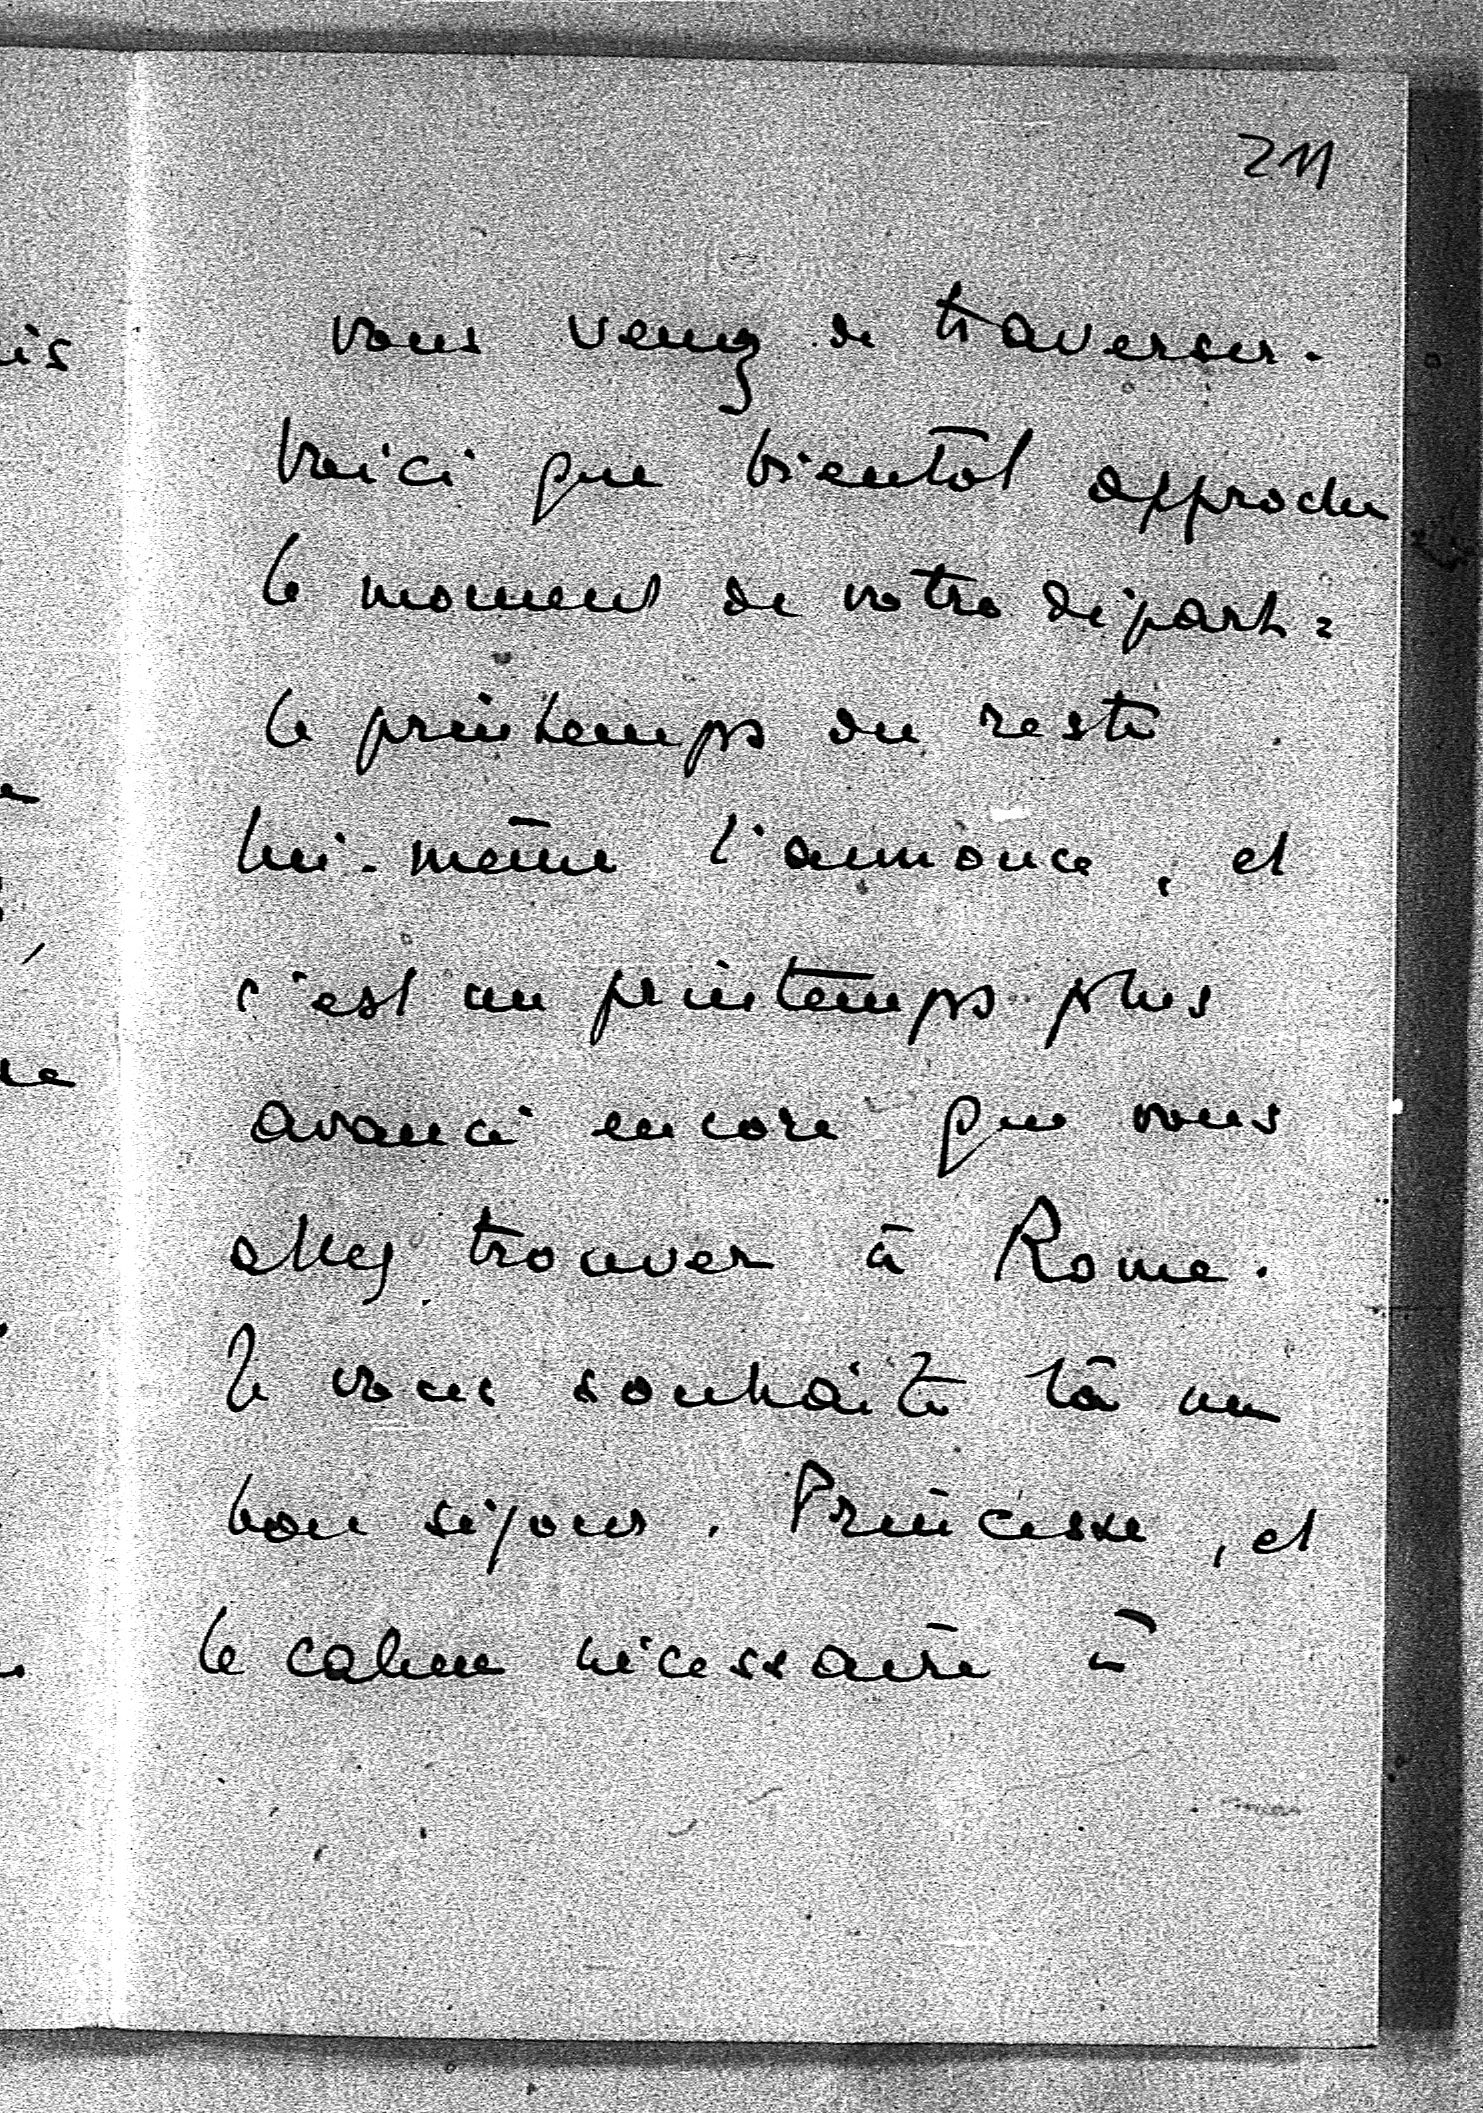 211
vous venez de traverser.
Voici que bientôt approche
le moment de votre départ :
le printemps du reste
lui-même l'annonce, et
c'est un printemps plus
avancé encore que vous
allez trouver à Rome.
Je vous souhaite là un
bon séjour, Princesse, et
le calme nécessaire à